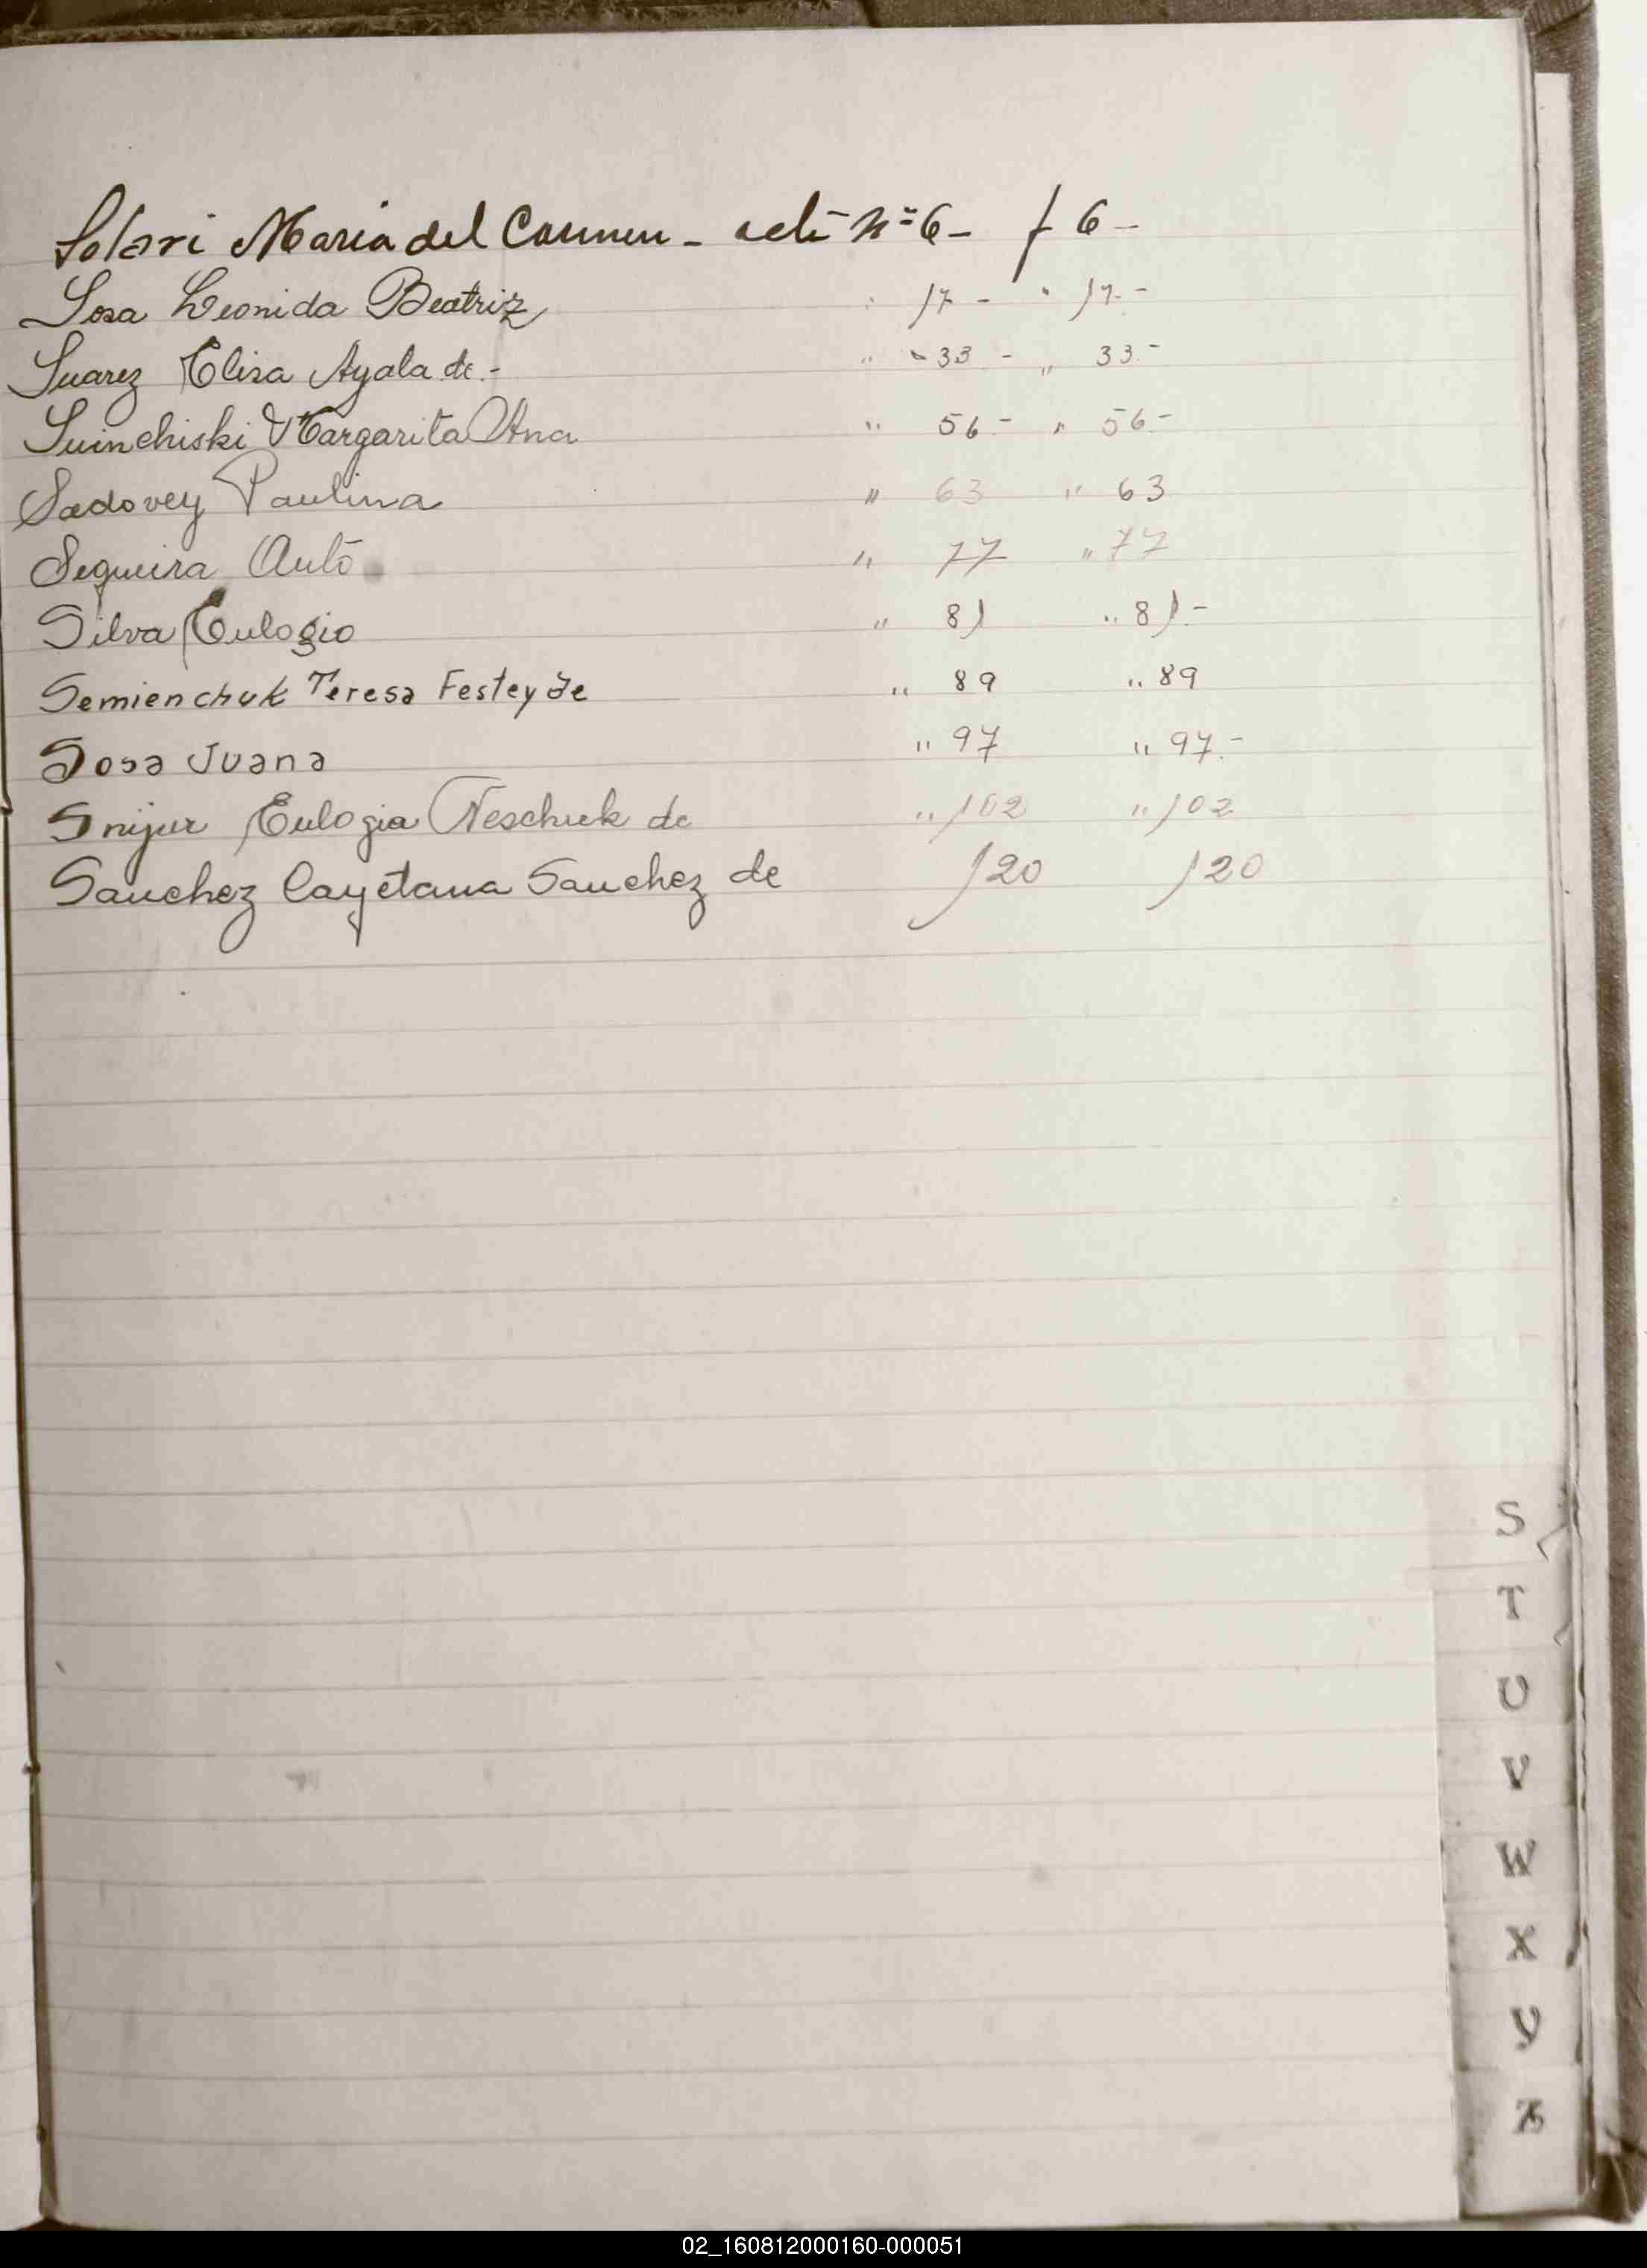 Solari Maria del Carmen - acta n° 6 - f 6 -
Sosa Leonida Beatriz " 17 - " 17 -
Suarez Elisa Ayala de - " " 33 - " 33 -
Suinchiski Margarita Ana " 56 - " 56 -
Sadovey Paulina " 63 " 63
Sequeira " 77 " 77
Silva Eulogio " 81 " 81 -
Semienchuk Teresa Festey de " 89 " 89
Sosa Juana " 97 " 97 -
Snijur Eulogia Neschuk de " 102 " 102
Sanchez Cayetana Sanchez de 120 120
S
T
U
V
W
X
Y
Z
02_160812000160-000051